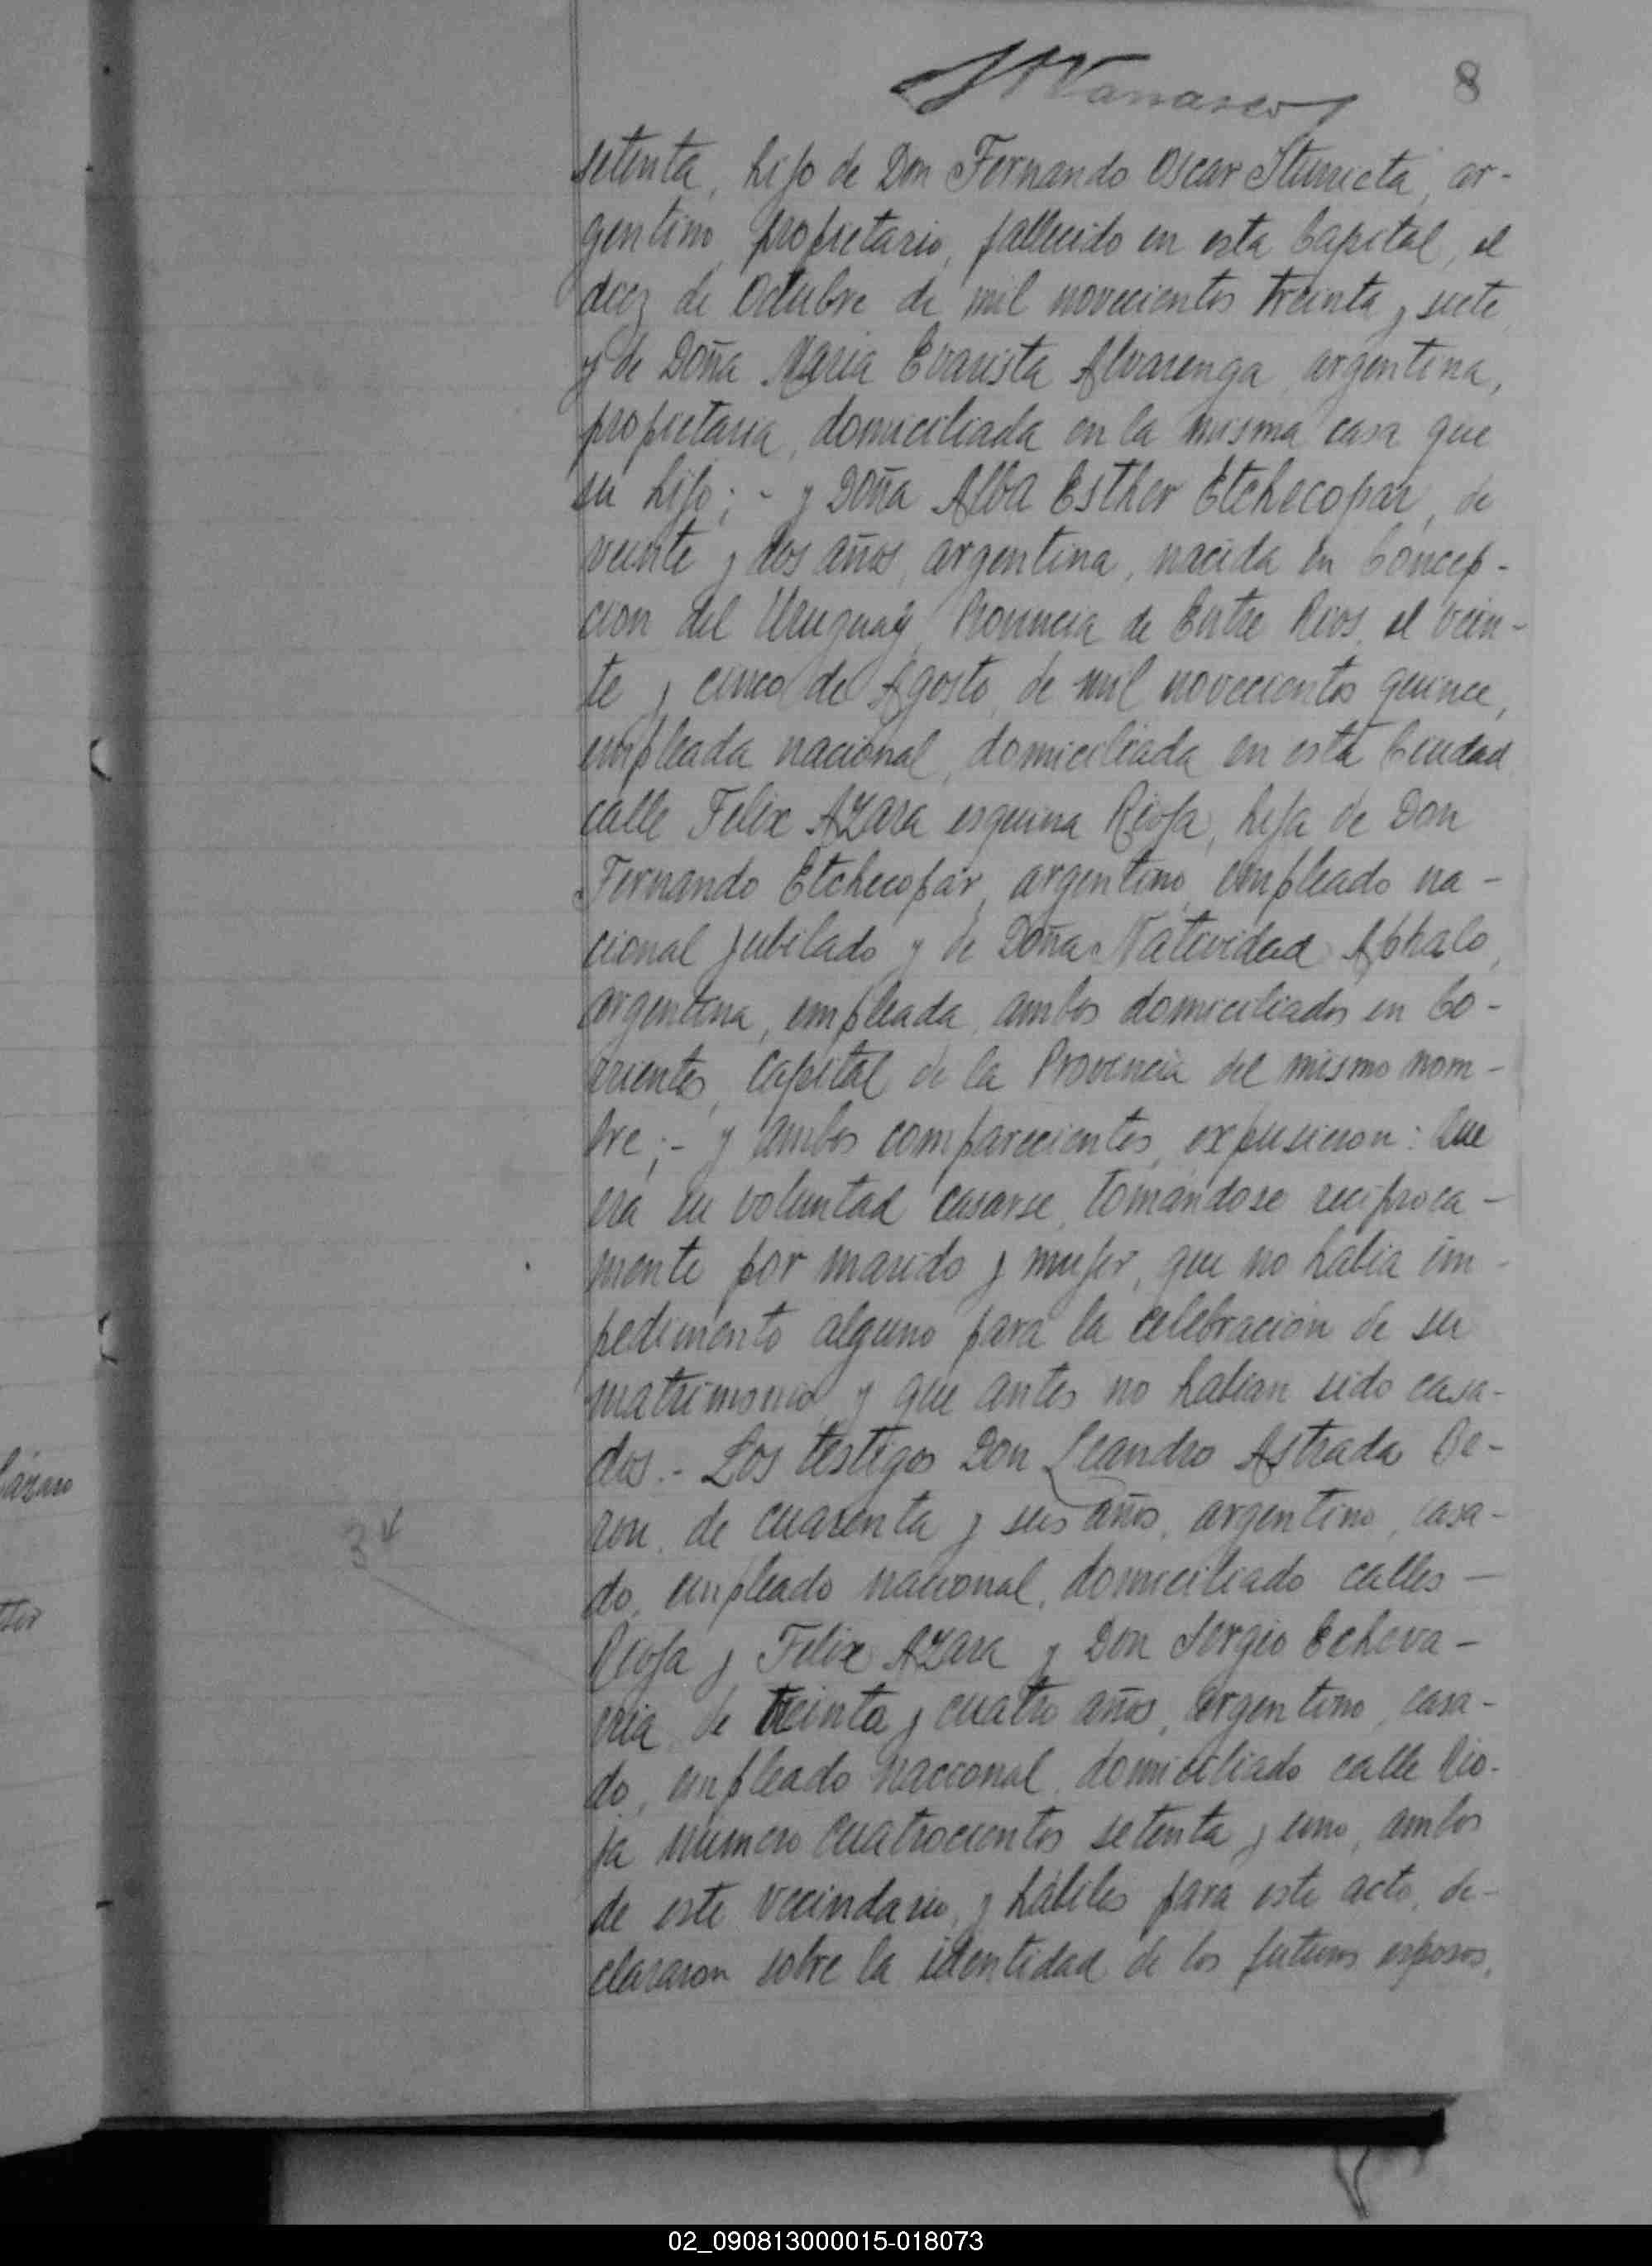 8
setenta, hijo de Don Fernando Oscar ar-
gentino, propietario, fallecido en esta Capital, el
diez de Octubre de mil novecientos treinta y siete,
y de Doña Maria Evarista Alvarenga, argentina,
propietaria, domiciliada en la misma casa que
su hijo; - y Doña Alba Esther Etchecopar, de
veinte y dos años, argentina, nacida en Concep-
cion del Uruguay, Provincia de Entre Rios, el vein-
te y cinco de Agosto, de mil novecientos quince,
empleada nacional, domiciliada en esta Ciudad,
calle Felix AZara esquina Rioja, hija de Don
Fernando Etchecopar, argentino, empleado na-
cional jubilado y de Doña Natividad
argentina, empleada, ambos domiciliados en Co-
rrientes, Capital de la Provincia del mismo nom-
bre; - y ambos comparecientes, expusieron: Que
era su voluntad casarse, tomándose reciproca-
mente por marido y mujer, que no habia im-
pedimento alguno para la celebración de su
matrimonio y que antes no habian sido casa-
dos. - Los testigos Don Leandro Astrada
de cuarenta y seis años, argentino, casa-
do, empleado nacional, domiciliado calles -
Rioja y Felix AZara y Don Sergio Echeva-
rria, de treinta y cuatro años, argentino, casa-
do, empleado nacional, domiciliado calle Rio-
ja número cuatrocientos setenta y uno, ambos
de este vecindario, y hábiles para este acto, de-
clararon sobre la identidad de los futuros esposos,
34
02_090813000015-018073